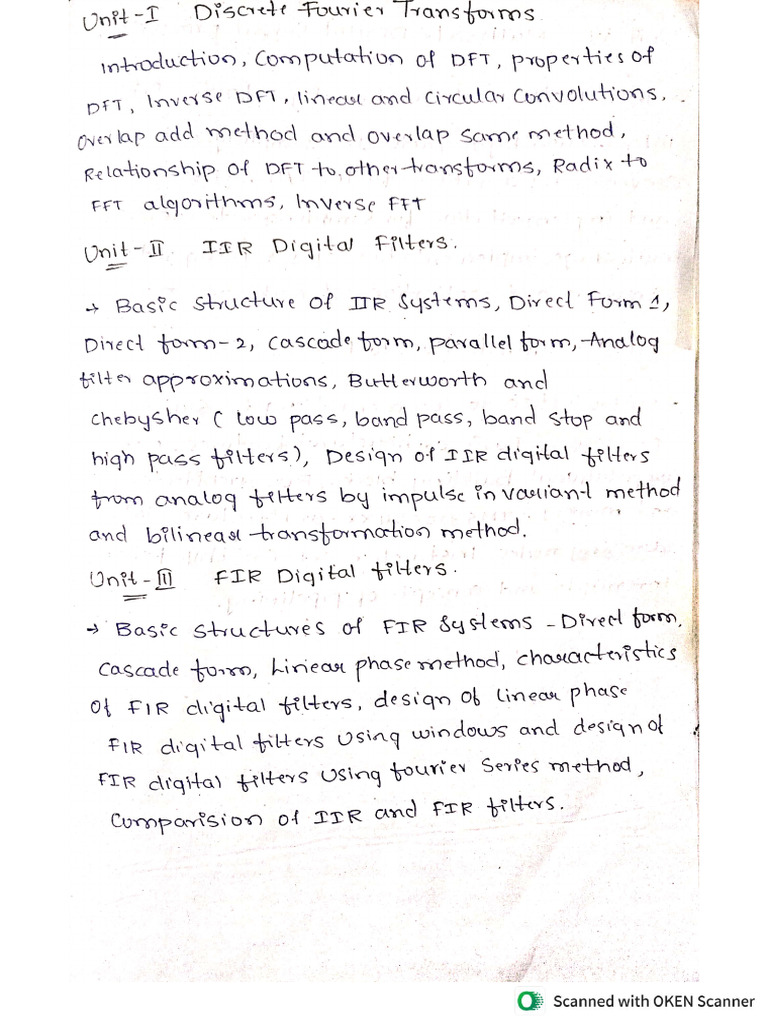 Unit-I Discrete Fourier Transforms.
Introduction, Computation of DFT, properties of
DFT, Inverse DFT, linear and Circular Convolutions,
Overlap add method and overlap same method,
Relationship of DFT to other transforms, Radix to
FFT algorithms, Inverse FFT
Unit-II IIR Digital Filters.
→ Basic structure of IIR Systems, Direct Form 1,
Direct form-2, cascade form, parallel form, Analog
filter approximations, Butterworth and
chebysher ( low pass, band pass, band stop and
high pass filters), Design of IIR digital filters
from analog filters by impulse invariant method
and bilinear transformation method.
Unit-III FIR Digital filters.
→ Basic structures of FIR Systems - Direct form,
Cascade form, Linear phase method, characteristics
Of FIR digital filters, design of linear phase
FIR digital filters using windows and design of
FIR digital filters using fourier Series method,
Comparision of IIR and FIR filters.
Scanned with OKEN Scanner